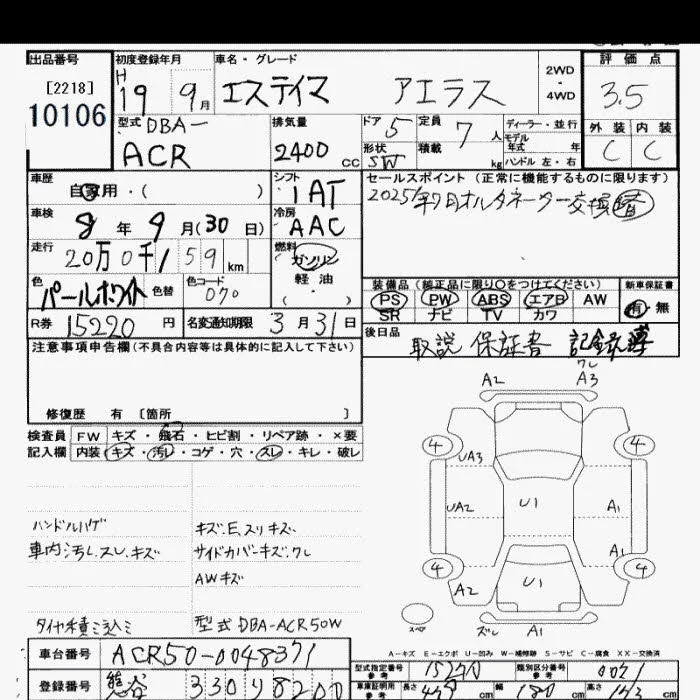 出品番号 初度登録年月 車名・グレード 2WD・4WD 評価点
[2218]
10106
H 19 9月 エスティマ アエラス 3.5
型式 DBA- 排気量 ドア 5 定員 7人 ディーラー・並行 外装 内装
ACR 2400 CC 形状 SW 積載 kg モデル年式 年 C C
ハンドル 左・右
車歴 シフト セールスポイント (正常に機能するものに限ります)
自家用・( ) 1AT 2025年7月オルタネーター交換替
車検 冷房
8年 9月(30日) AAC
走行 燃料
20万0千159km ガソリン
軽油
( )
色 色替 色コード 装備品 (純正品に限り○をつけてください) 新車保証書
パールホワイト 070 PS PW ABS エアB AW 有・無
SR ナビ TV カワ
R券 15220円 名変通知期限 3月31日 後日品
取説 保証書 記録簿
注意事項申告欄(不具合内容等は具体的に記入して下さい)
修復歴 有 [箇所 ]
検査員 FW キズ・飛石・ヒビ割・リペア跡・×要
記入欄 内装 キズ・汚レ・コゲ・穴・スレ・キレ・破レ
ハンドルハゲ キズ.E.スリキズ
車内汚レ.スレ.キズ サイドカバーキズ.ワレ
AWキズ
タイヤ積ミ込ミ 型式DBA-ACR50W
A2 ワレ A3
4 4
UA3
UA2 U1 A1
A1
4 4
A2 U1
スペア ズレ A1
A-キズ E-エクボ U-凹み W-補修跡 S-サビ C-腐食 XX-交換済
車台番号 ACR50-0048371
型式指定番号 参考 15270 類別区分番号 参考 0071
登録番号 熊谷 330
車車証明用 参考 長さ cm 幅 180 cm 高さ cm